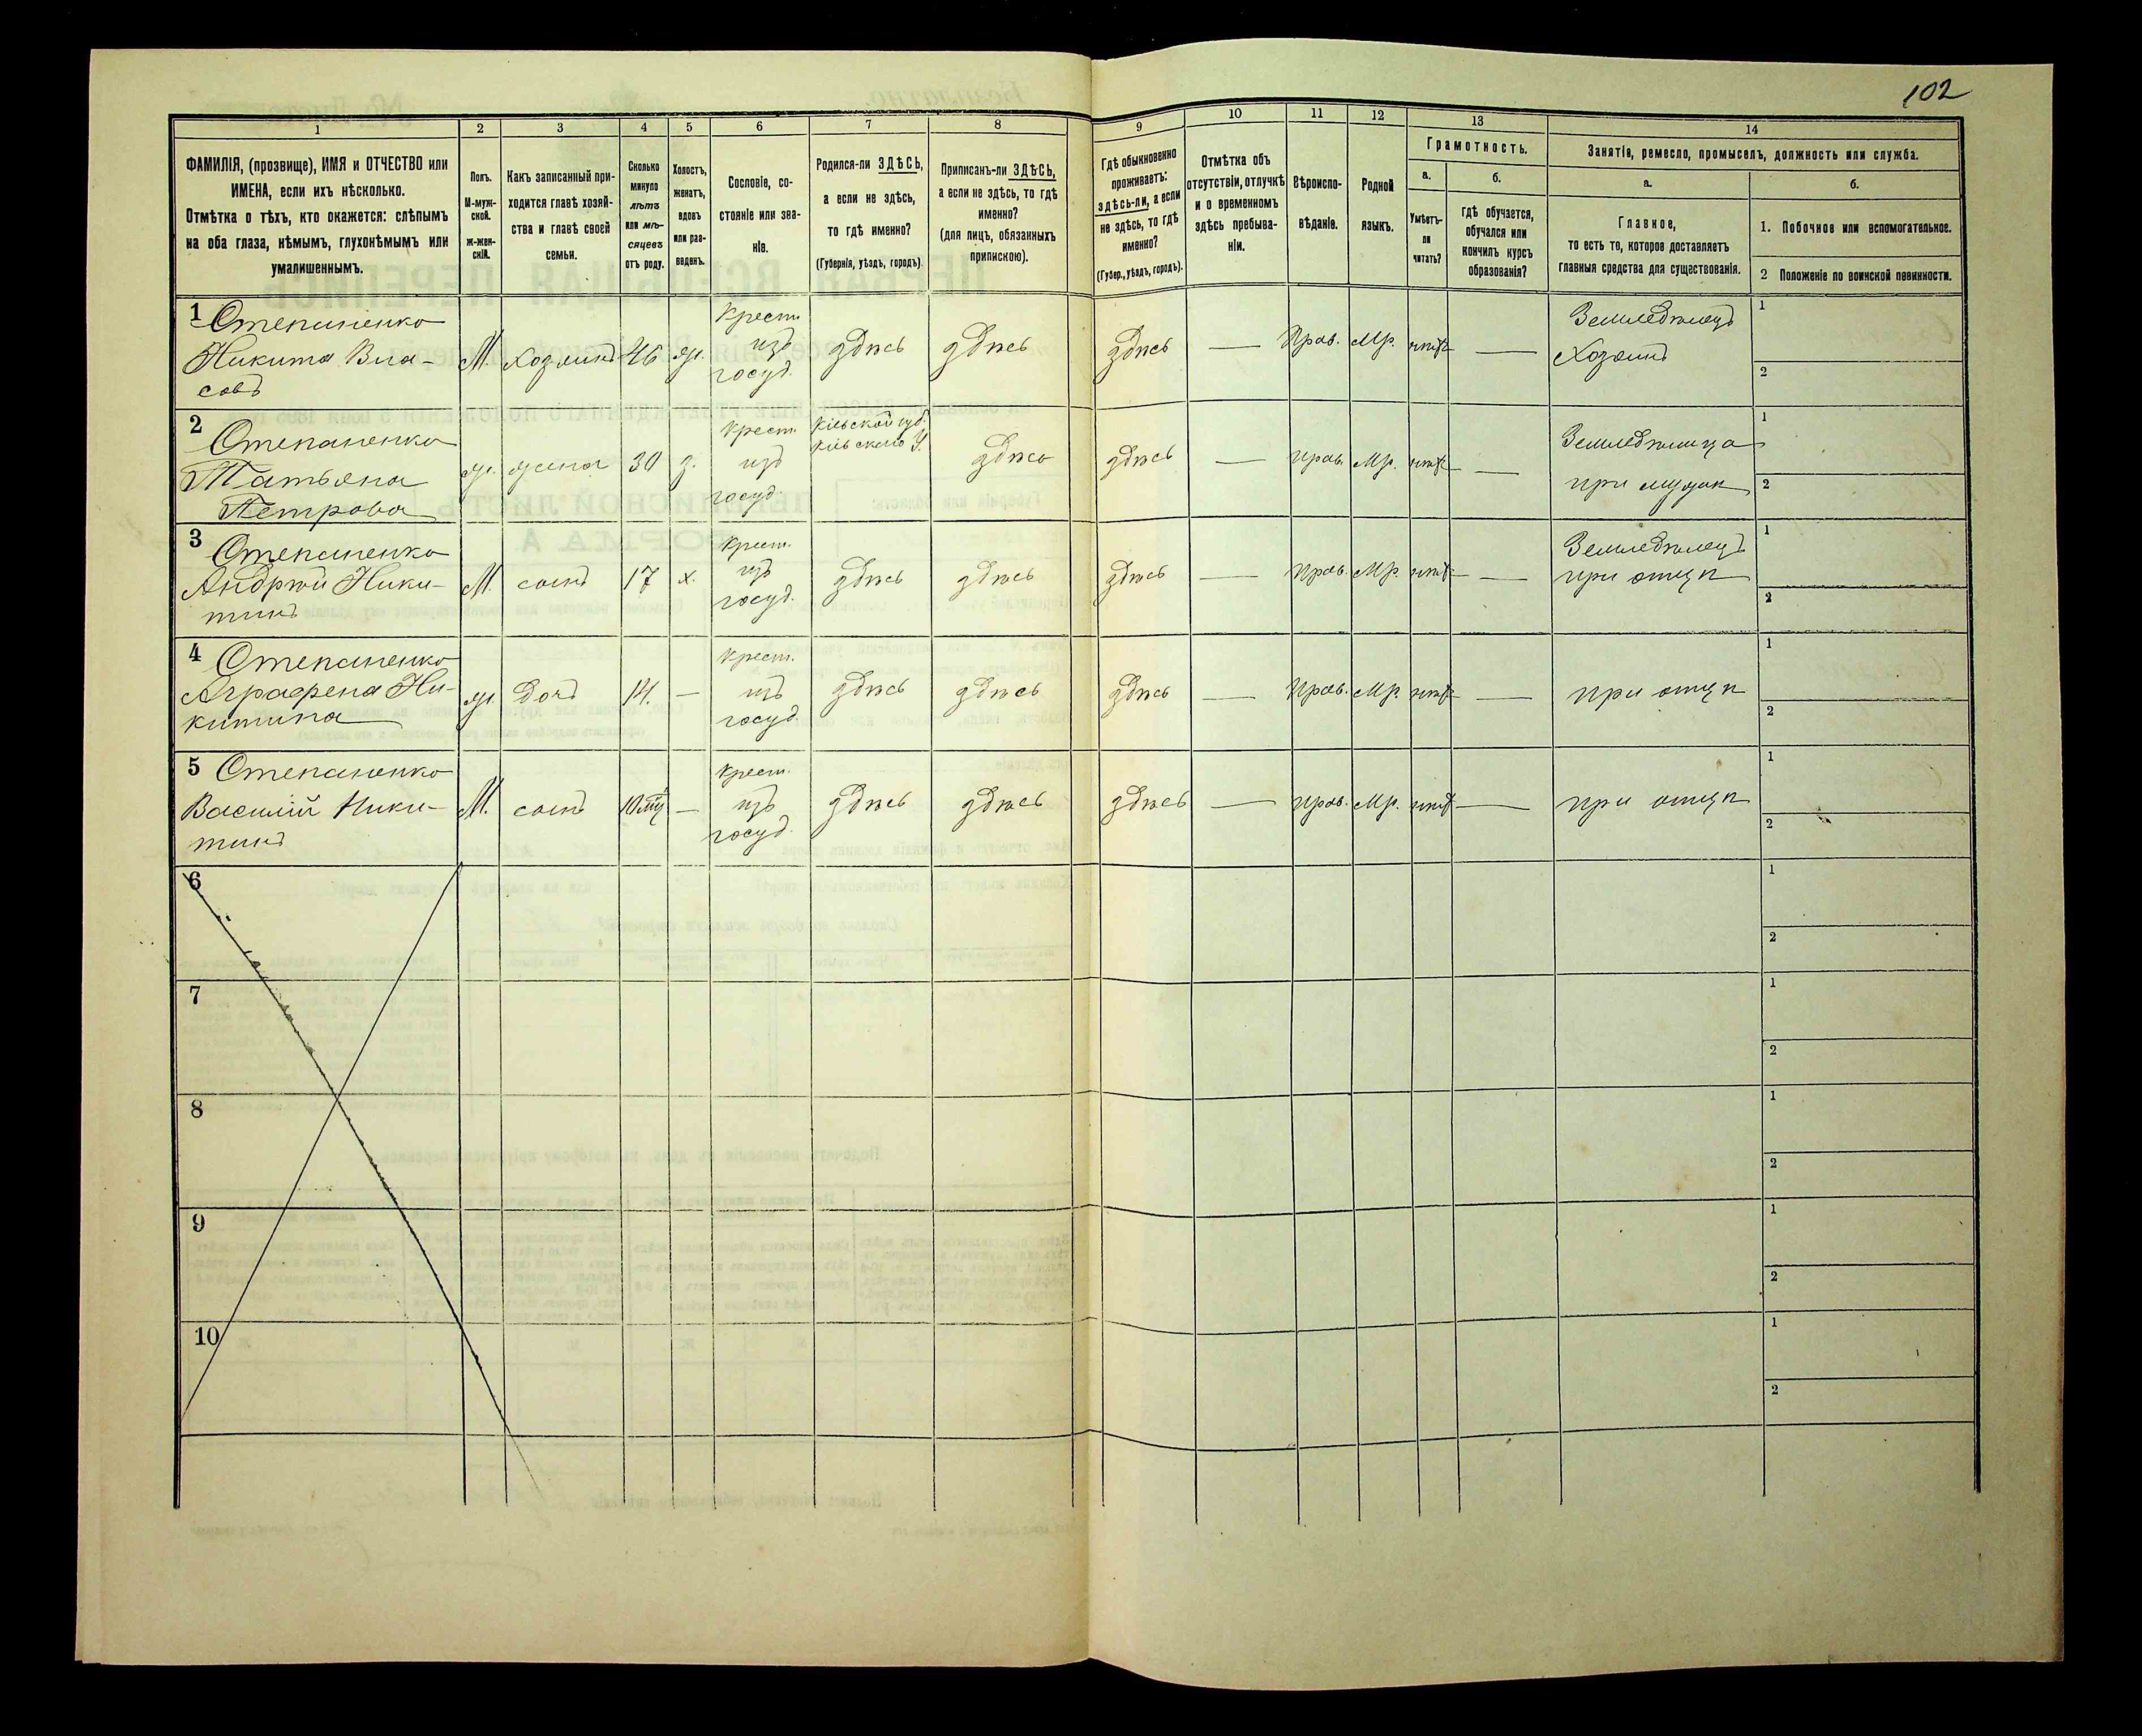 102
1
2
3
4
5
6
7
8
9
10
11
12
13
14
ФАМИЛІЯ, (прозвище), ИМЯ и ОТЧЕСТВО или
ИМЕНА, если ихъ нѣсколько.
Отмѣтка о тѣхъ, кто окажется: слѣпымъ
на оба глаза, нѣмымъ, глухонѣмымъ или
умалишеннымъ.
Полъ.
М-муж-
ской.
ж-жен-
скій.
Какъ записанный при-
ходится главѣ хозяй-
ства и главѣ своей
семьи.
Сколько
минуло
лѣтъ
или мѣ-
сяцевъ
отъ роду.
Холостъ,
женатъ,
вдовъ
или раз-
веденъ.
Сословіе, со-
стояніе или зва-
ніе.
Родился-ли ЗДѢСЬ,
а если не здѣсь,
то гдѣ именно?
(Губернія, уѣздъ, городъ).
Приписанъ-ли ЗДѢСЬ,
а если не здѣсь, то гдѣ
именно?
(для лицъ, обязанныхъ
припискою).
Гдѣ обыкновенно
проживаетъ:
здѣсь-ли, а если
не здѣсь, то гдѣ
именно?
(Губер., уѣздъ, городъ).
Отмѣтка объ
отсутствіи, отлучкѣ
и о временномъ
здѣсь пребыва-
ніи.
Вѣроиспо-
вѣданіе.
Родной
языкъ.
Грамотность.
а.
Умѣетъ-
ли
читать?
б.
гдѣ обучается,
обучался или
кончилъ курсъ
образованія?
Занятіе, ремесло, промыселъ, должность или служба.
а.
Главное,
то есть то, которое доставляетъ
главныя средства для существованія.
б.
1. Побочное или вспомогательное.
2 Положеніе по воинской повинности.
1 Степаненко
Никита Вла-
совъ
М. хозяинъ 46 ж.
Крест.
изъ
госуд.
здѣсь здѣсь здѣсь — Прав. Мр. нѣтъ —
Земледѣлецъ
Хозяинъ
1
2
2 Степаненко
Татьяна
Петрова
ж. жена 30 з.
Крест.
изъ
госуд.
Кіевской губ.
Кіевскаго У.
здѣсь здѣсь — Прав. Мр. нѣтъ —
Земледѣлица
при мужѣ
1
2
3 Степаненко
Андрѣй Ники-
тинъ
М. сынъ 17 х.
Крест.
изъ
госуд.
здѣсь здѣсь здѣсь — Прав. Мр. нѣтъ —
Земледѣлецъ
при отцѣ
1
2
4 Степаненко
Аграфена Ни-
китина
ж. дочь 14. —
Крест.
изъ
госуд.
здѣсь здѣсь здѣсь — Прав. Мр. нѣтъ —
при отцѣ
1
2
5 Степаненко
Василій Ники-
тинъ
М. сынъ —
Крест.
изъ
госуд.
здѣсь здѣсь здѣсь — Прав. Мр. нѣтъ —
при отцѣ
1
2
6
1
2
7
1
2
8
1
2
9
1
2
10
1
2